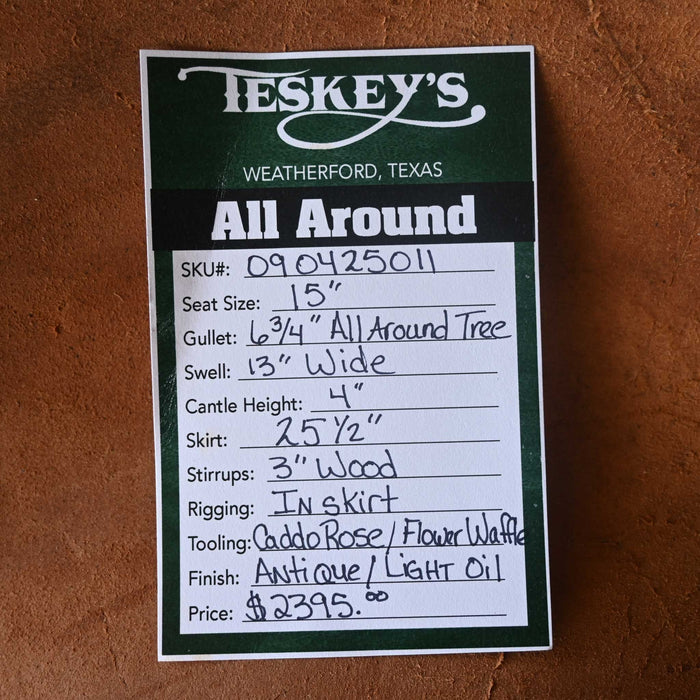 TESKEY'S
WEATHERFORD, TEXAS
All Around
SKU#: 090425011
Seat Size: 15"
Gullet: 6 3/4" All Around Tree
Swell: 13" Wide
Cantle Height: 4"
Skirt: 25 1/2"
Stirrups: 3" Wood
Rigging: In skirt
Tooling: Caddo Rose / Flower Waffle
Finish: Antique / LIGHT Oil
Price: $2395.00